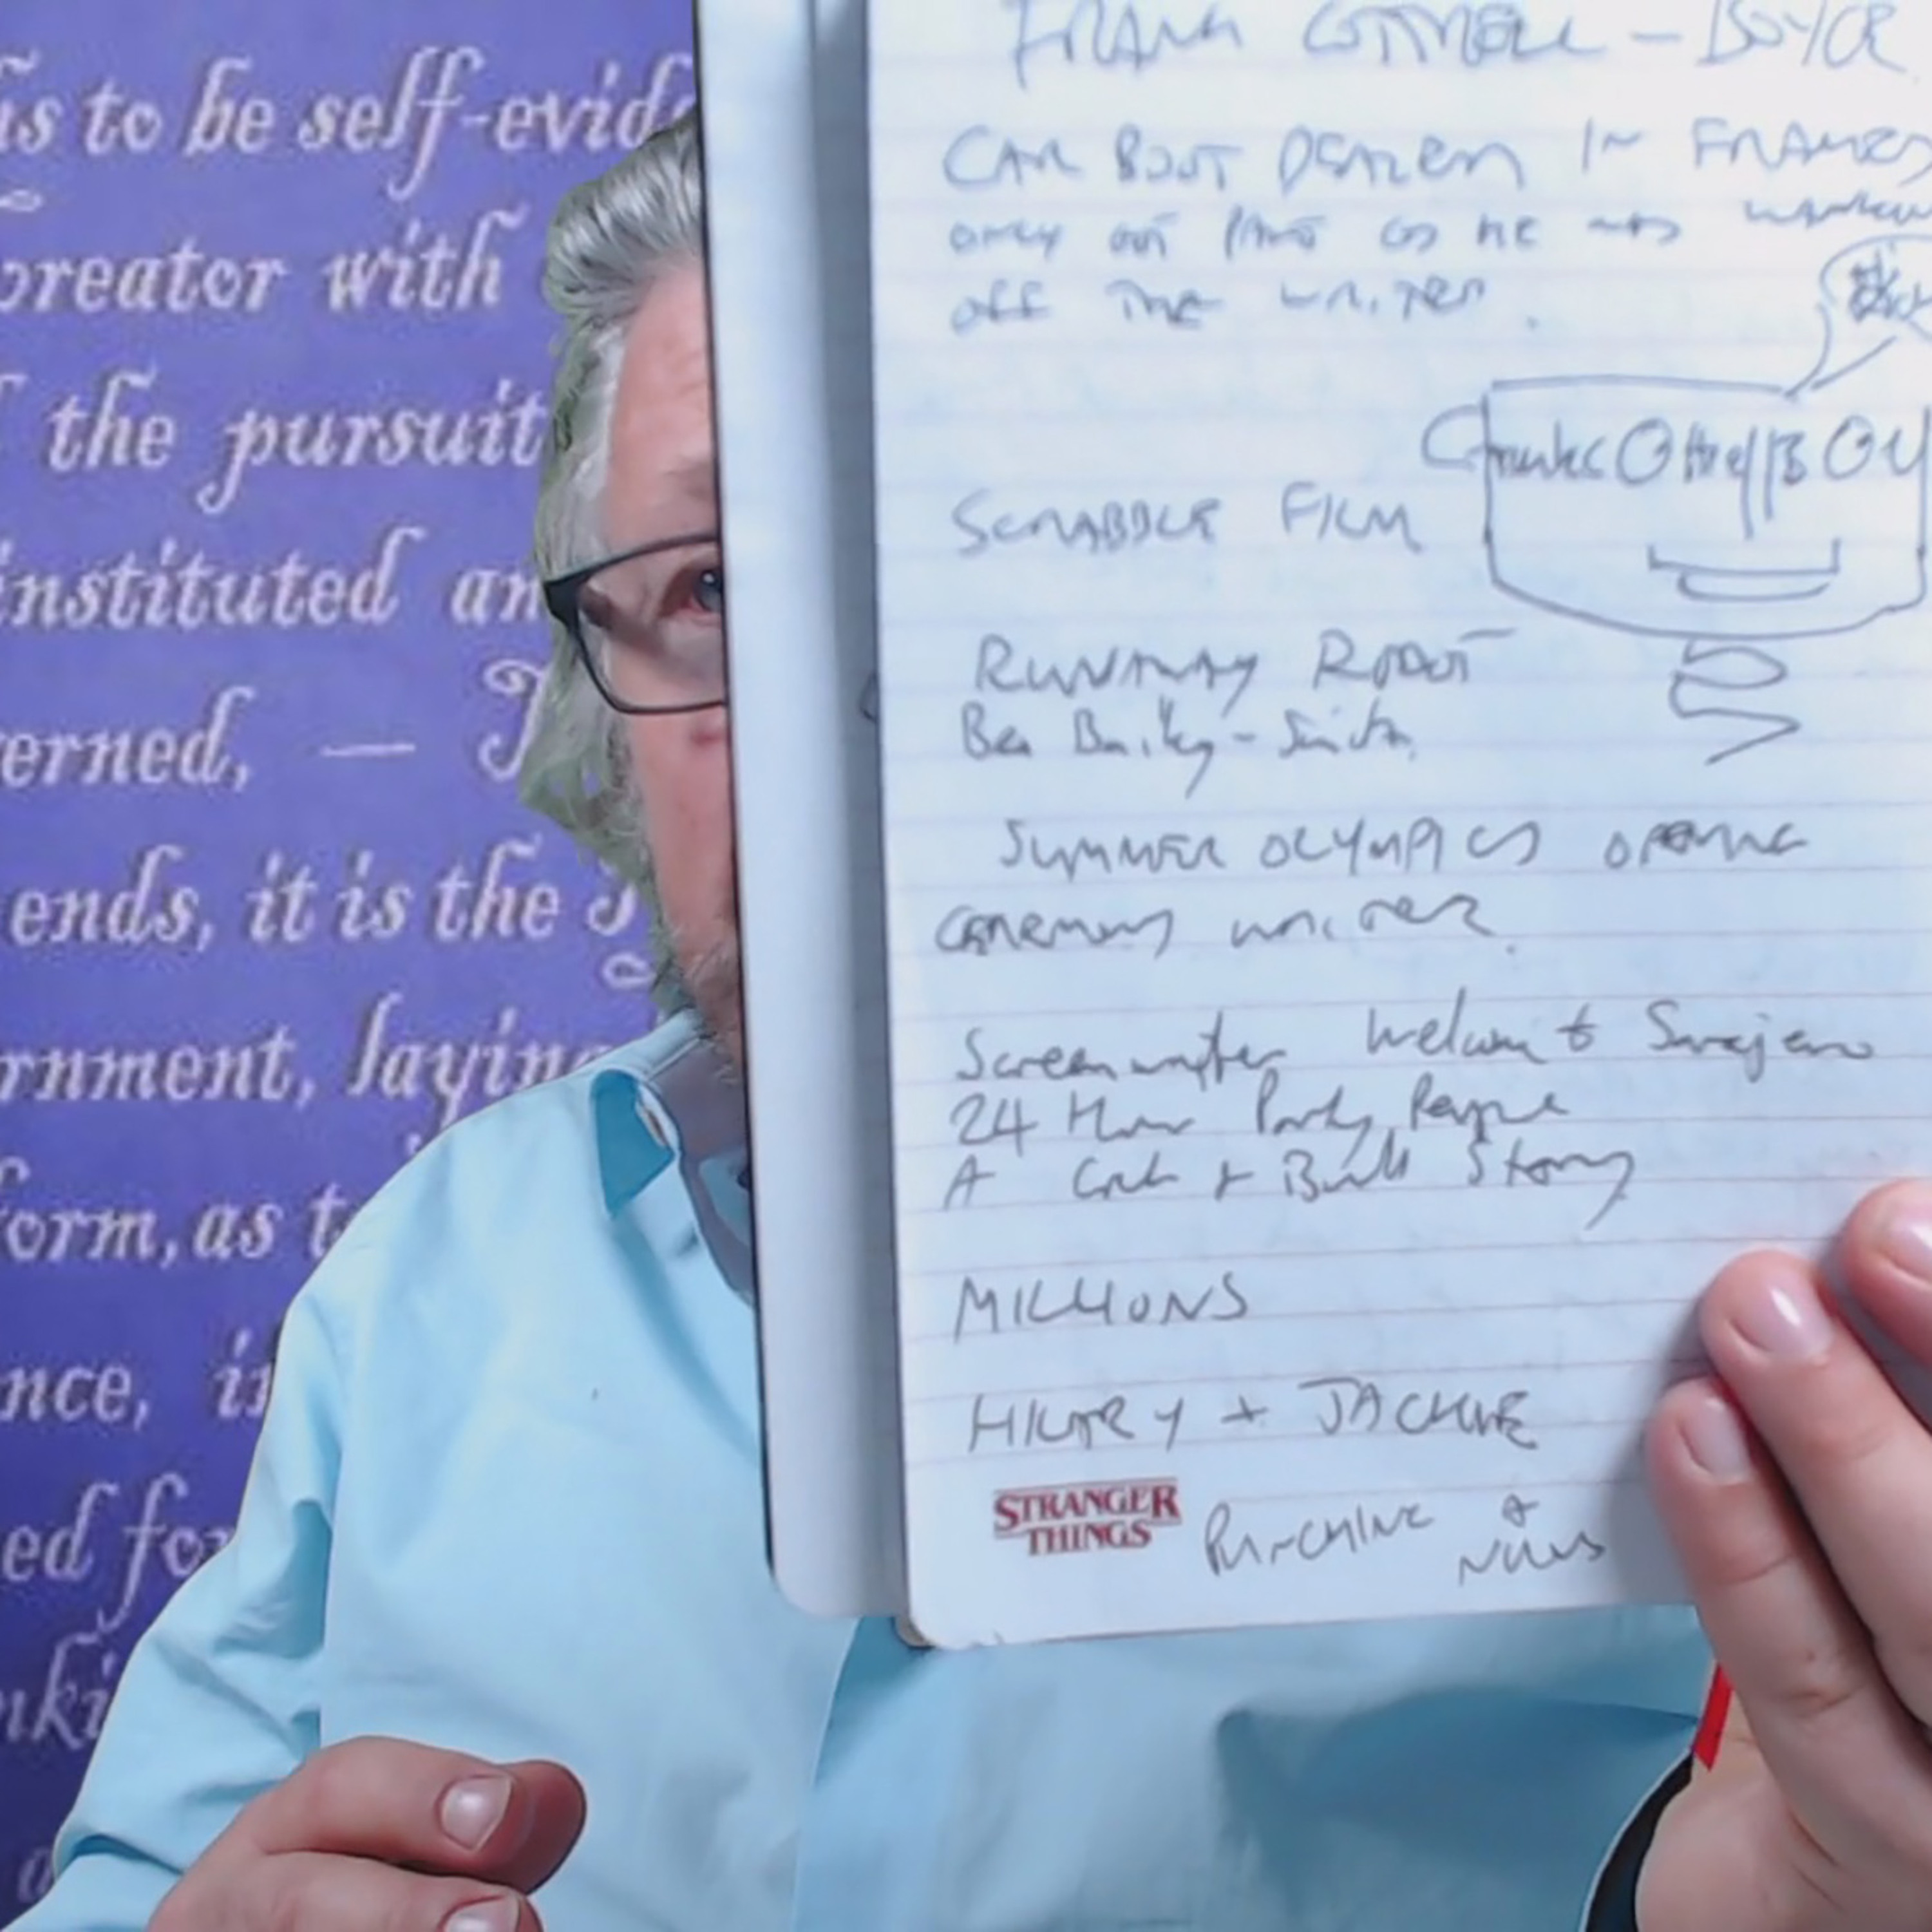 is to be self-evid
creator with
the pursuit
instituted an
erned, —
ends, it is the
rnment, laying
form, as t
nce, in
ed for
FRANK COTTRELL - BOYCE
CAR BOOT DEALER IN FRAMES
only
off THE WRITER.
SCRABBLE FILM
RUNAWAY ROBOT
Ben Bailey-Smith.
SUMMER OLYMPICS OPENING
CEREMONY WRITER.
Screenwriter Welcome to Sarajevo
24 Hour Party People
A Cock & Bull Story
MILLIONS
HILARY + JACKIE
STRANGER
THINGS
PUNCHLINE &
NUNS